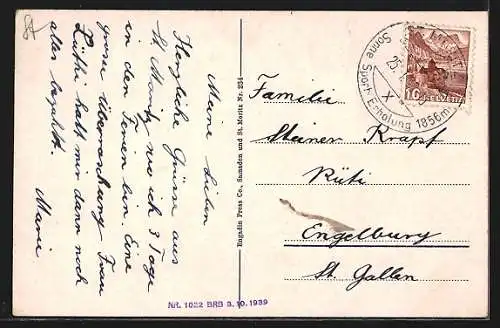 Meine Lieben
Herzliche Grüsse aus
St. Moritz wo ich 3 Tage
in den Ferien bin. Eine
grosse Überraschung Frau
Lüthi hatt mir dann noch
alles bezahlt.
Marie
Engadin Press Co., Samaden und St. Moritz Nr. 254
Nrf. 1022 BRB 3.10.1939
Sonne Sport Erholung 1856m
10 HELVETIA
Familie
Steiner Krapf
Rüti
Engelburg
St. Gallen